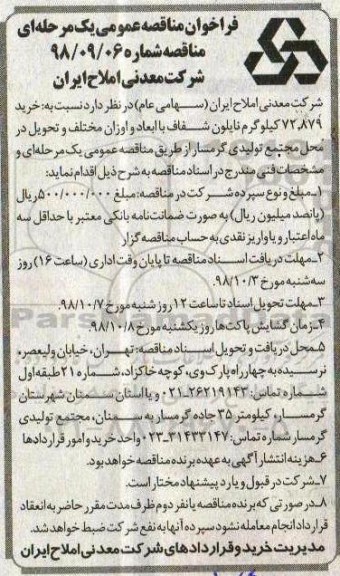 فراخوان مناقصه عمومی یک مرحله‌ای
مناقصه شماره ۹۸/۰۹/۰۶
شرکت معدنی املاح ایران
شرکت معدنی املاح ایران (سهامی عام) در نظر دارد نسبت به: خرید
۷۲,۸۷۹ کیلوگرم نایلون شفاف با ابعاد و اوزان مختلف و تحویل در
محل مجتمع تولیدی گرمسار از طریق مناقصه عمومی یک مرحله‌ای و
مشخصات فنی مندرج در اسناد مناقصه به شرح ذیل اقدام نماید:
۱ـ مبلغ و نوع سپرده شرکت در مناقصه: مبلغ ۵۰۰/۰۰۰/۰۰۰ ریال
(پانصد میلیون ریال) به صورت ضمانت‌نامه بانکی معتبر با حداقل سه
ماه اعتبار و یا واریز نقدی به حساب مناقصه گزار
۲ـ مهلت دریافت اسناد مناقصه تا پایان وقت اداری (ساعت ۱۶) روز
سه‌شنبه مورخ ۹۸/۱۰/۳.
۳ـ مهلت تحویل اسناد تا ساعت ۱۲ روز شنبه مورخ ۹۸/۱۰/۷.
۴ـ زمان گشایش پاکت‌ها روز یکشنبه مورخ ۹۸/۱۰/۸.
۵ـ محل دریافت و تحویل اسناد مناقصه: تهران، خیابان ولیعصر،
نرسیده به چهارراه پارک وی، کوچه خاکزاد، شماره ۲۱ طبقه اول
شماره تماس: ۲۶۲۱۹۱۴۳-۰۲۱ و یا استان سمنان شهرستان
گرمسار، کیلومتر ۳۵ جاده گرمسار به سمنان، مجتمع تولیدی
گرمسار شماره تماس: ۳۱۴۳۳۱۴۷-۰۲۳ واحد خرید و امور قراردادها
۶ـ هزینه انتشار آگهی به عهده برنده مناقصه خواهد بود.
۷ـ شرکت در قبول و یا رد پیشنهاد مختار است.
۸ـ در صورتی که برنده مناقصه یا نفر دوم ظرف مدت مقرر حاضر به انعقاد
قرارداد انجام معامله نشود سپرده آنها به نفع شرکت ضبط خواهد شد.
مدیریت خرید و قراردادهای شرکت معدنی املاح ایران